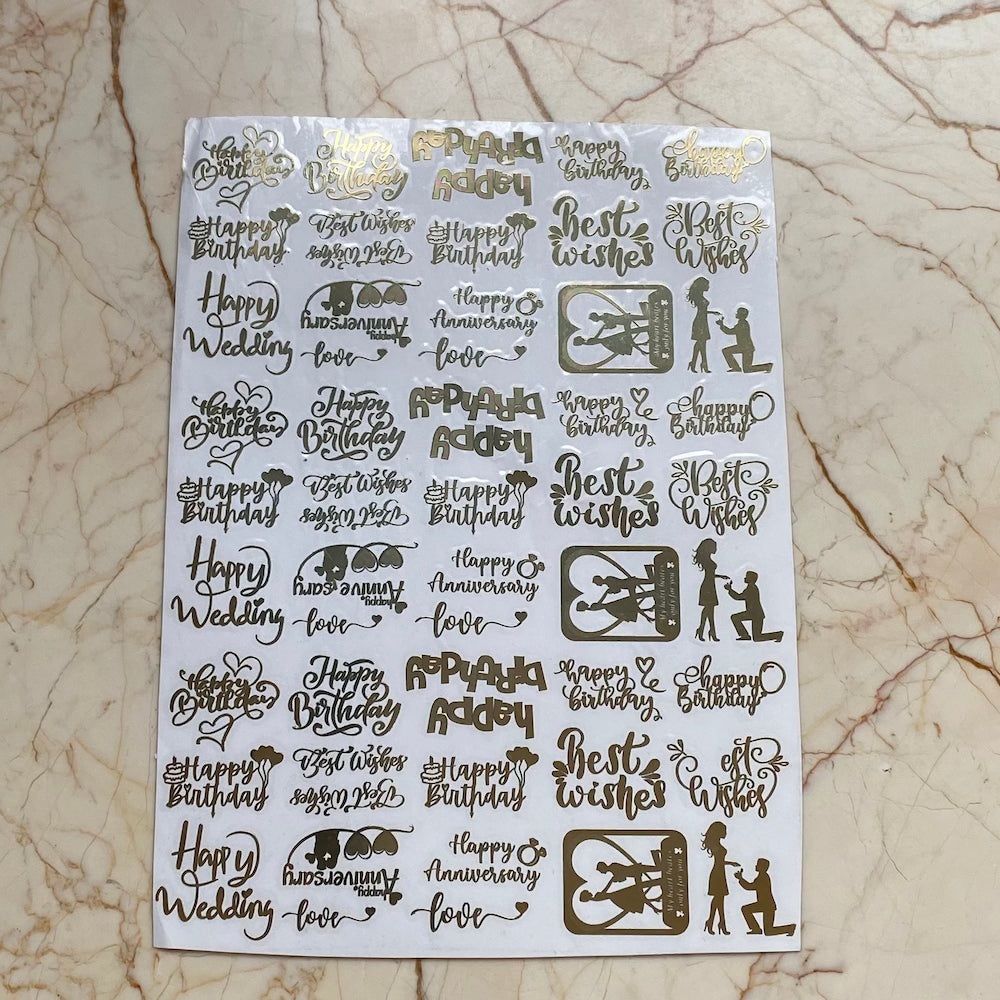 Happy
Birthday
Happy
Birthday
Happy
Birthday
happy
birthday
happy
Birthday
Happy
Birthday
Best Wishes
Best Wishes
Happy
Birthday
Best
wishes
Best
Wishes
Happy
Wedding
Happy
Anniversary
love
Happy
Anniversary
love
My heart beates
only for you
Happy
Birthday
Happy
Birthday
Happy
Birthday
happy
birthday
happy
Birthday
Happy
Birthday
Best Wishes
Best Wishes
Happy
Birthday
Best
wishes
Best
Wishes
Happy
Wedding
Happy
Anniversary
love
Happy
Anniversary
love
My heart beates
only for you
Happy
Birthday
Happy
Birthday
Happy
Birthday
happy
birthday
happy
Birthday
Happy
Birthday
Best Wishes
Best Wishes
Happy
Birthday
Best
wishes
est
Wishes
Happy
Wedding
Happy
Anniversary
love
Happy
Anniversary
love
My heart beates
only for you